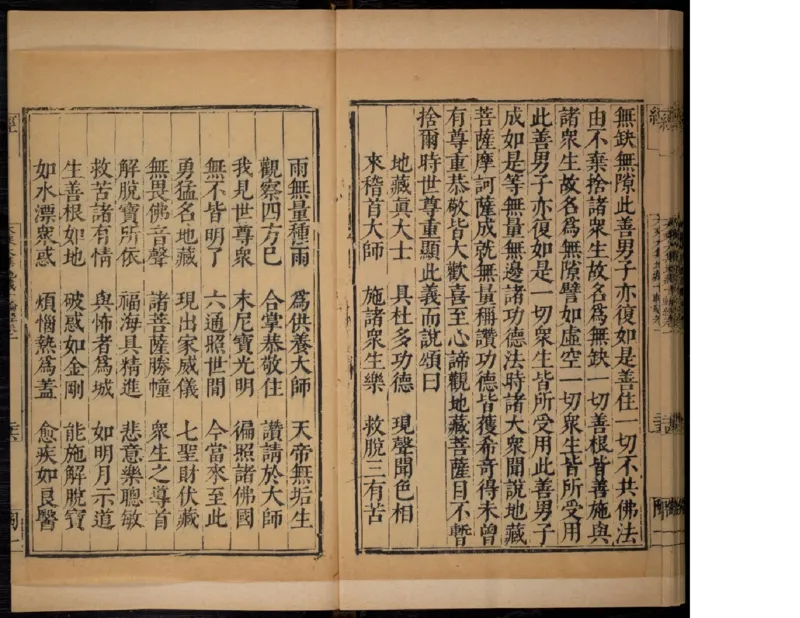 無缺無隙此善男子亦復如是善住一切不共佛法
由不棄捨諸衆生故名爲無缺一切善根皆善施與
諸衆生故名爲無隙譬如虛空一切衆生皆所受用
此善男子亦復如是一切衆生皆所受用此善男子
成如是等無量無邊諸功德法時諸大衆聞說地藏
菩薩摩訶薩成就無量稱讚功德皆獲希奇得未曾
有尊重恭敬皆大歡喜至心諦觀地藏菩薩目不暫
捨爾時世尊重顯此義而說頌曰
地藏眞大士　具杜多功德　現聲聞色相
來稽首大師　施諸衆生樂　救脫三有苦
雨無量種雨　爲供養大師　天帝無垢生
觀察四方已　合掌恭敬住　讚請於大師
我見世尊衆　末尼寶光明　徧照諸佛國
無不皆明了　六通照世間　今當來至此
勇猛名地藏　現出家威儀　七聖財伏藏
無畏佛音聲　諸菩薩勝幢　衆生之導首
解脫寶所依　福海具精進　悲意樂聰敏
救苦諸有情　與怖者爲城　如明月示道
生善根如地　破惑如金剛　能施解脫寶
如水漂衆惑　煩惱熱爲蓋　愈疾如良醫